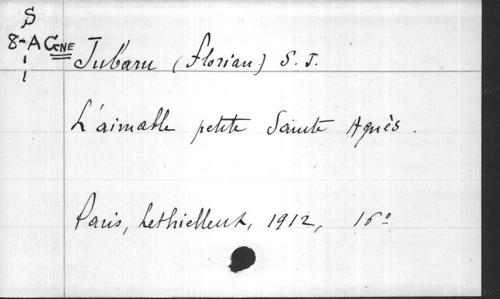 S
8-A GNE
Jubaru (Florian) S. J.
L'aimable petite Sainte Agnès.
Paris, Lethielleux, 1912, 16°